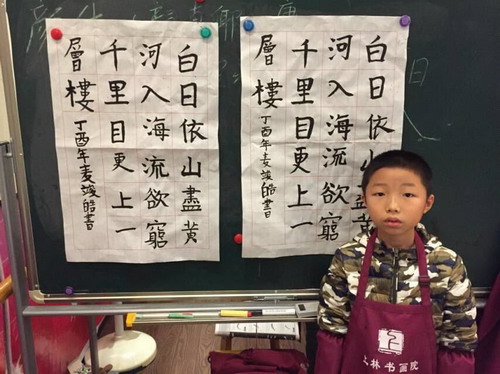 白日依山盡黃
河入海流欲窮
千里目更上一
層樓
丁酉年麦竣皓書
白日依山盡黃
河入海流欲窮
千里目更上一
層樓
丁酉年麦竣皓書
林书画院